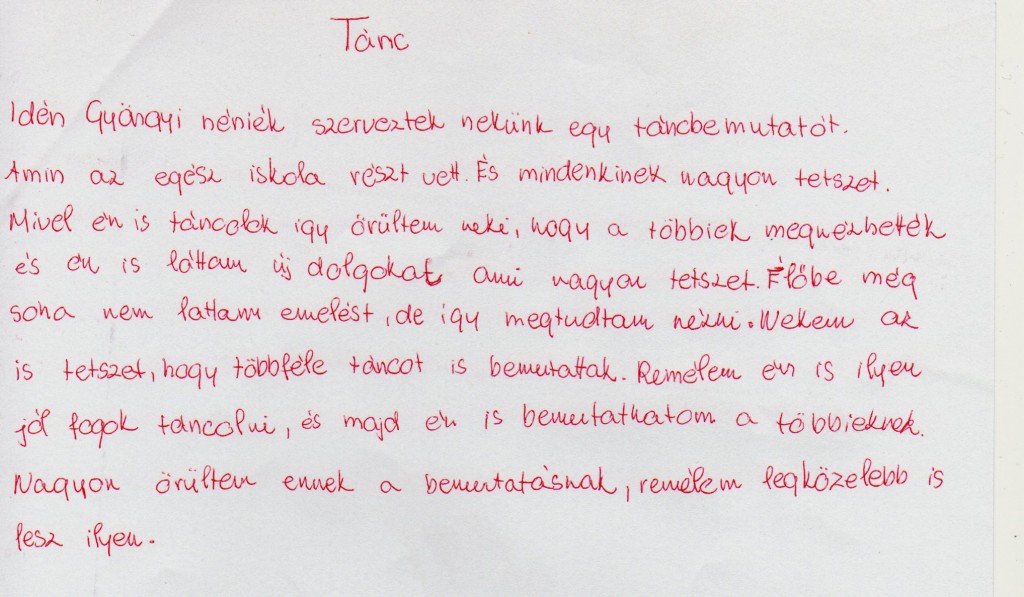 Tánc
Idén Gyöngyi néniék szerveztek nekünk egy táncbemutatót.
Amin az egész iskola részt vett. És mindenkinek nagyon tetszet.
Mivel én is táncolok így örültem neki, hogy a többiek megnézhették
és én is láttam új dolgokat ami nagyon tetszet. Élőbe még
soha nem láttam emelést, de így megtudtam nézni. Nekem az
is tetszet, hogy többféle táncot is bemutattak. Remélem én is ilyen
jól fogok táncolni, és majd én is bemutathatom a többieknek.
Nagyon örültem ennek a bemutatásnak, remélem legközelebb is
lesz ilyen.